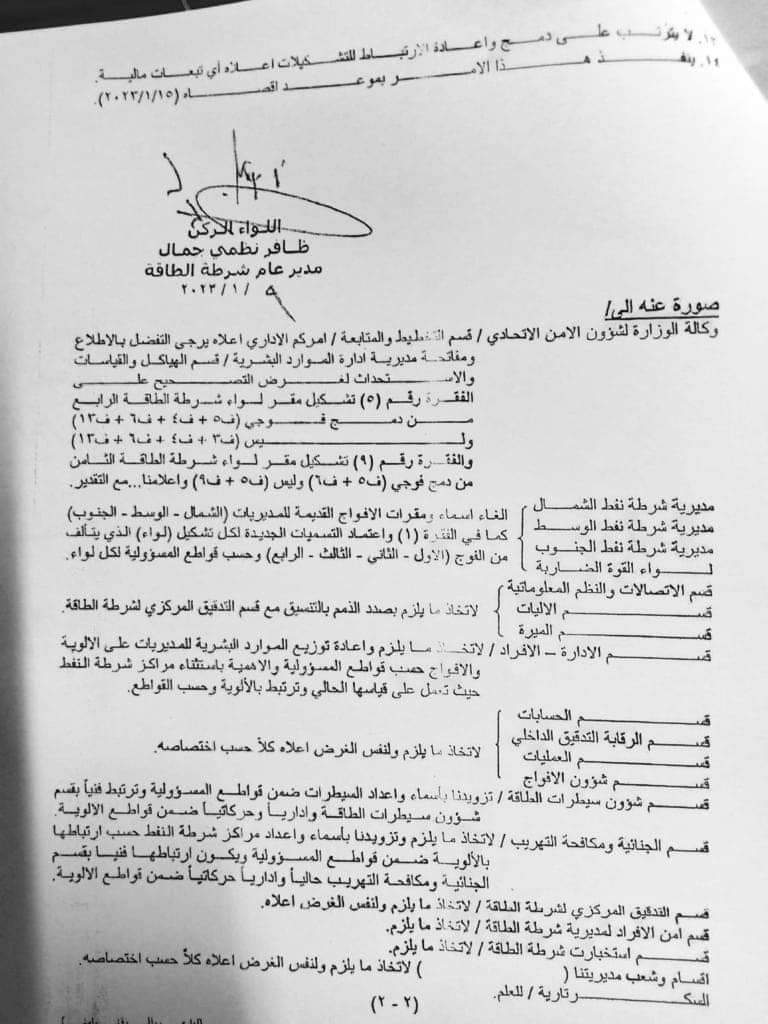 ١٣. لا يترتب على دمج واعادة الارتباط للتشكيلات اعلاه أي تبعات مالية.
١٤. ينفذ هذا الامر بموعد اقصاه (٢٠٢٣/١/١٥).
اللواء الركن
ظافر نظمي جمال
مدير عام شرطة الطاقة
٩ / ١ / ٢٠٢٣
صورة عنه الى/
وكالة الوزارة لشؤون الامن الاتحادي / قسم التخطيط والمتابعة / امركم الاداري اعلاه يرجى التفضل بالاطلاع
ومفاتحة مديرية ادارة الموارد البشرية / قسم الهياكل والقياسات
والاستحداث لغرض التصحيح على
الفقرة رقم (٥) تشكيل مقر لواء شرطة الطاقة الرابع
من دمج فوجي (ف٥ + ف٤ + ف٦ + ف١٣)
وليس (ف٣ + ف٤ + ف٦ + ف١٣)
والفقرة رقم (٩) تشكيل مقر لواء شرطة الطاقة الثامن
من دمج فوجي (ف٥ + ف٦) وليس (ف٥ + ف٩) واعلامنا...مع التقدير.
مديرية شرطة نفط الشمال
مديرية شرطة نفط الوسط
مديرية شرطة نفط الجنوب
لواء القوة الضاربة
الغاء اسماء ومقرات الافواج القديمة للمديريات (الشمال - الوسط - الجنوب)
كما في الفقرة (١) واعتماد التسميات الجديدة لكل تشكيل (لواء) الذي يتألف
من الفوج (الاول - الثاني - الثالث - الرابع) وحسب قواطع المسؤولية لكل لواء.
قسم الاتصالات والنظم المعلوماتية
قسم الاليات
قسم الميرة
لاتخاذ ما يلزم بصدد الذمم بالتنسيق مع قسم التدقيق المركزي لشرطة الطاقة.
قسم الادارة – الافراد / لاتخاذ ما يلزم واعادة توزيع الموارد البشرية للمديريات على الالوية
والافواج حسب قواطع المسؤولية والاهمية باستثناء مراكز شرطة النفط
حيث تعمل على قياسها الحالي وترتبط بالألوية وحسب القواطع.
قسم الحسابات
قسم الرقابة التدقيق الداخلي
قسم العمليات
قسم شؤون الافواج
لاتخاذ ما يلزم ولنفس الغرض اعلاه كلاً حسب اختصاصه.
قسم شؤون سيطرات الطاقة / تزويدنا بأسماء واعداد السيطرات ضمن قواطع المسؤولية وترتبط فنياً بقسم
شؤون سيطرات الطاقة وادارياً وحركاتياً ضمن قواطع الالوية.
قسم الجنائية ومكافحة التهريب / لاتخاذ ما يلزم وتزويدنا بأسماء واعداد مراكز شرطة النفط حسب ارتباطها
بالألوية ضمن قواطع المسؤولية ويكون ارتباطها فنيا بقسم
الجنائية ومكافحة التهريب حالياً وادارياً حركاتياً ضمن قواطع الالوية.
قسم التدقيق المركزي لشرطة الطاقة / لاتخاذ ما يلزم ولنفس الغرض اعلاه.
قسم امن الافراد لمديرية شرطة الطاقة / لاتخاذ ما يلزم.
قسم استخبارت شرطة الطاقة / لاتخاذ ما يلزم.
اقسام وشعب مديريتنا ( ) لاتخاذ ما يلزم ولنفس الغرض اعلاه كلاً حسب اختصاصه.
السكرتارية / للعلم.
(٢ - ٢)